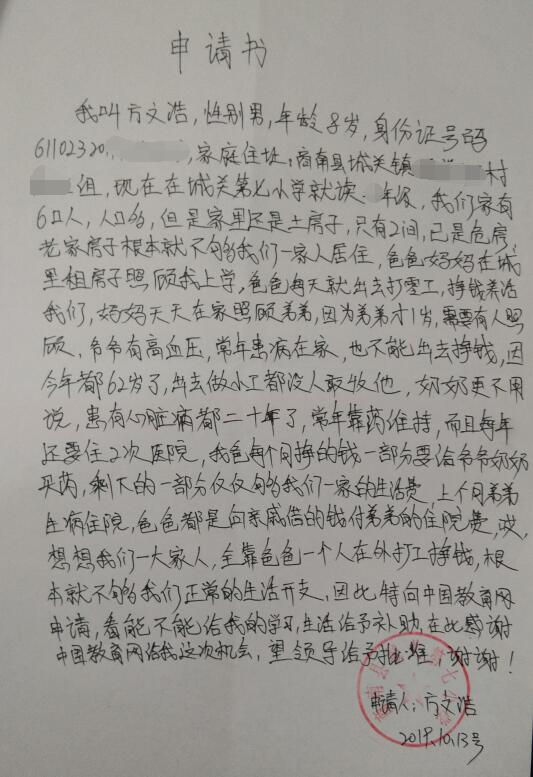 申请书
我叫方文浩,性别男,年龄8岁,身份证号码
61102320,家庭住址:商南县城关镇村
组,现在在城关第七小学就读年级,我们家有
6口人,人口多,但是家里还是土房子,只有2间,已是危房,
老家房子根本就不够我们一家人居住,爸爸妈妈在城
里租房子照顾我上学,爸爸每天就出去打零工,挣钱养活
我们,妈妈天天在家照顾弟弟,因为弟弟才1岁,需要有人照
顾,爷爷有高血压,常年患病在家,也不能出去挣钱,因
今年都62岁了,出去做小工都没人敢收他,奶奶更不用
说,患有心脏病都二十年了,常年靠药维持,而且每年
还要住2次医院,我爸每个月挣的钱一部分要给爷爷奶奶
买药,剩下的一部分仅仅够我们一家的生活费,上个月弟弟
生病住院,爸爸都是向亲戚借的钱付弟弟的住院费,哎,
想想我们一大家人,全靠爸爸一个人在外打工挣钱,根
本就不够我们正常的生活开支,因此特向中国教育网
申请,看能不能给我的学习,生活给予补助,在此感谢
中国教育网给我这次机会,望领导给予批准,谢谢!
申请人:方文浩
2019.10.13号